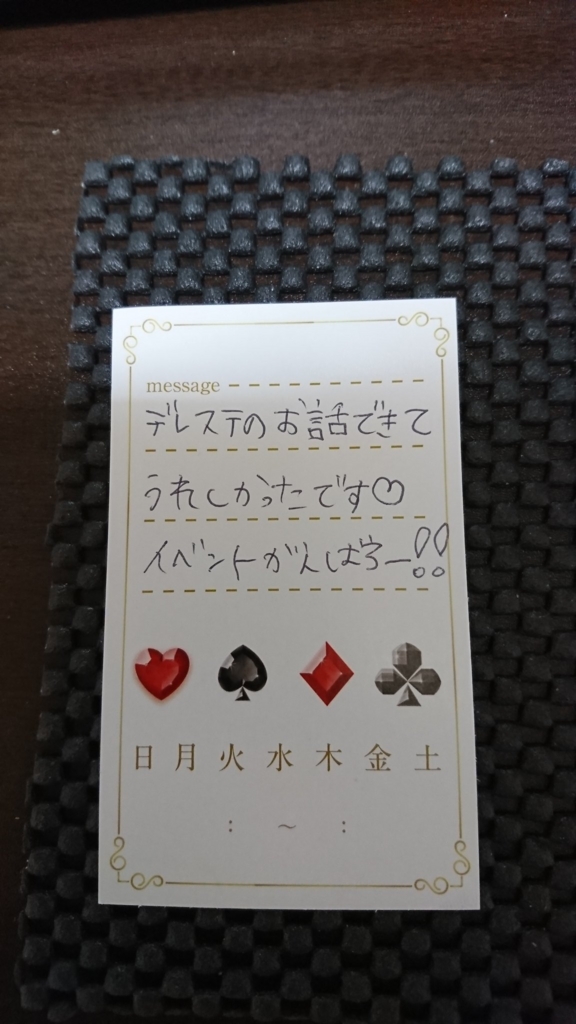 message
デレステのお話できて
うれしかったです♡
イベントがんばろー!!
日 月 火 水 木 金 土
: ～ :